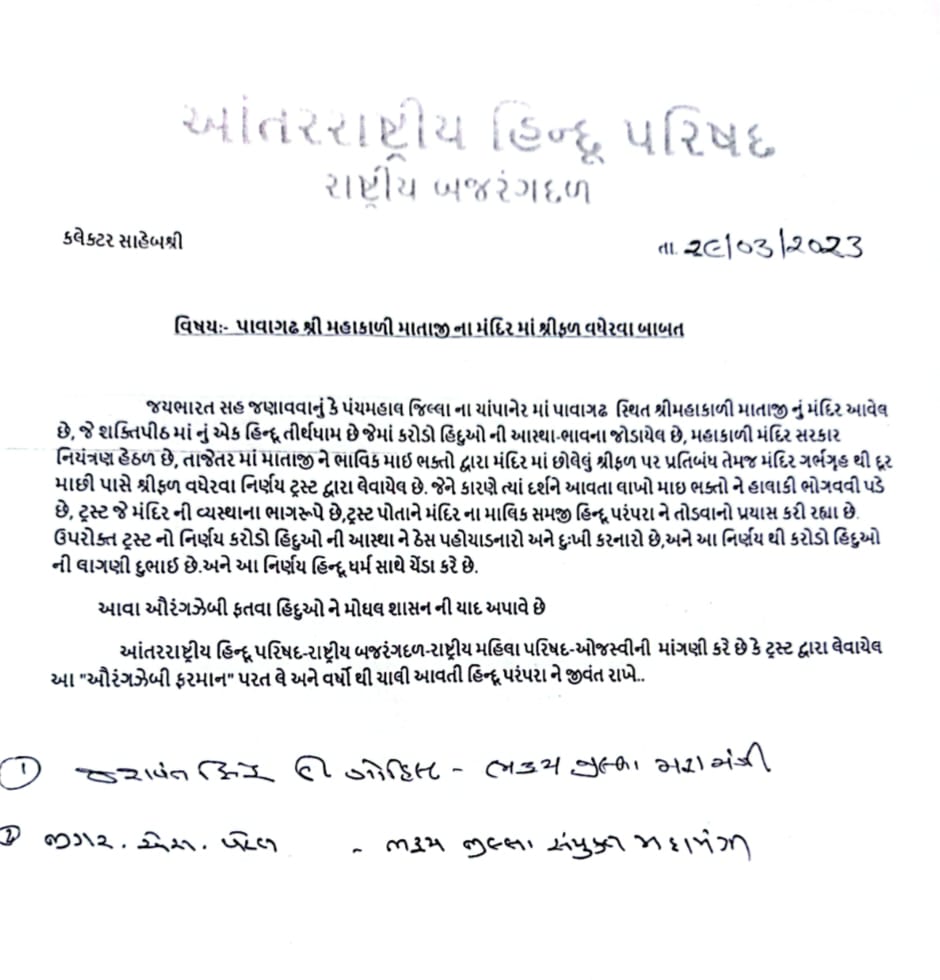 આંતરરાષ્ટ્રીય હિન્દૂ પરિષદ
રાષ્ટ્રીય બજરંગદળ
કલેક્ટર સાહેબશ્રી
તા. ૨૯/૦૩/૨૦૨૩
વિષયઃ- પાવાગઢ શ્રી મહાકાળી માતાજી ના મંદિર માં શ્રીફળ વધેરવા બાબત
જયભારત સહ જણાવવાનું કે પંચમહાલ જિલ્લા ના ચાંપાનેર માં પાવાગઢ સ્થિત શ્રીમહાકાળી માતાજી નું મંદિર આવેલ
છે, જે શક્તિપીઠ માં નું એક હિન્દૂ તીર્થધામ છે જેમાં કરોડો હિંદુઓ ની આસ્થા-ભાવના જોડાયેલ છે, મહાકાળી મંદિર સરકાર
નિયંત્રણ હેઠળ છે, તાજેતર માં માતાજી ને ભાવિક માઇ ભક્તો દ્વારા મંદિર માં છોલેલું શ્રીફળ પર પ્રતિબંધ તેમજ મંદિર ગર્ભગૃહ થી દૂર
માછી પાસે શ્રીફળ વધેરવા નિર્ણય ટ્રસ્ટ દ્વારા લેવાયેલ છે. જેને કારણે ત્યાં દર્શને આવતા લાખો માઇ ભક્તો ને હાલાકી ભોગવવી પડે
છે, ટ્રસ્ટ જે મંદિર ની વ્યસ્થાના ભાગરૂપે છે,ટ્રસ્ટ પોતાને મંદિર ના માલિક સમજી હિન્દૂ પરંપરા ને તોડવાનો પ્રયાસ કરી રહ્યા છે.
ઉપરોક્ત ટ્રસ્ટ નો નિર્ણય કરોડો હિંદુઓ ની આસ્થા ને ઠેસ પહોચાડનારો અને દુઃખી કરનારો છે,અને આ નિર્ણય થી કરોડો હિંદુઓ
ની લાગણી દુભાઈ છે.અને આ નિર્ણય હિન્દૂ ધર્મ સાથે ચેંડા કરે છે.
આવા ઔરંગઝેબી ફતવા હિંદુઓ ને મોઘલ શાસન ની યાદ અપાવે છે
આંતરરાષ્ટ્રીય હિન્દૂ પરિષદ-રાષ્ટ્રીય બજરંગદળ-રાષ્ટ્રીય મહિલા પરિષદ-ઓજસ્વીની માંગણી કરે છે કે ટ્રસ્ટ દ્વારા લેવાયેલ
આ "ઔરંગઝેબી ફરમાન" પરત લે અને વર્ષો થી ચાલી આવતી હિન્દૂ પરંપરા ને જીવંત રાખે..
૧ જશવંતસિંહ ડી ગોહિલ - ભરૂચ જીલ્લા મહામંત્રી
૨ જીગર. એસ. પટેલ - ભરૂચ જીલ્લા સંયુક્ત મહામંત્રી